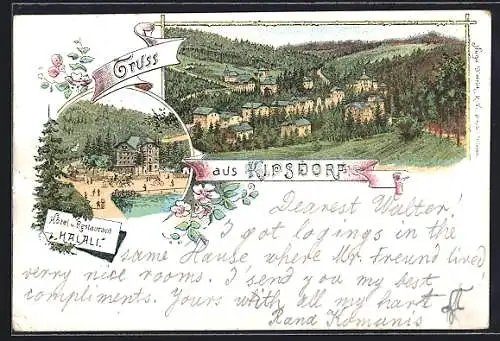 Gruss
aus KIPSDORF
Hotel u. Restaurant
"HALALI."
Dearest Walter!
I got logings in the
same Hause where Mr. Freund lived
verry nice rooms. I'send you my best
compliments. Yours with all my hart
Rand Komanis